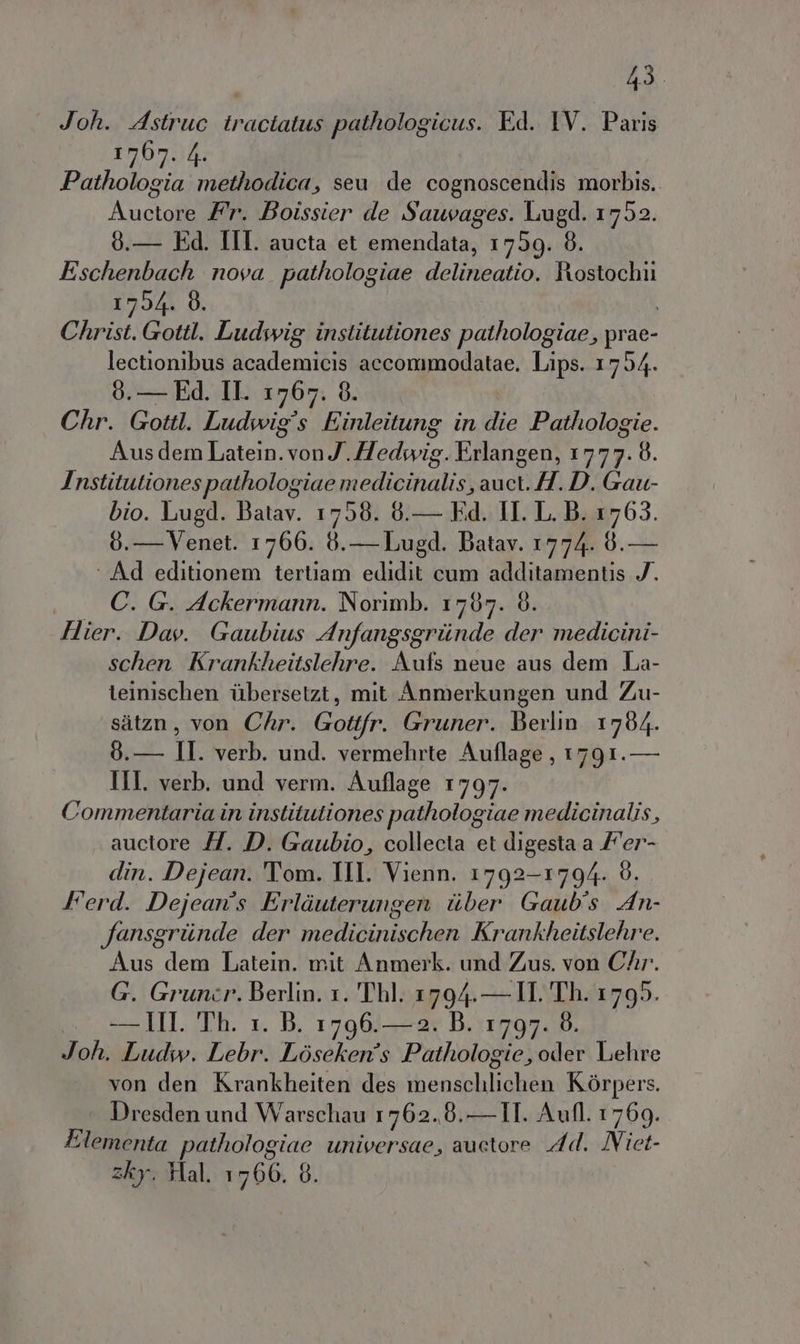 43
Joh. Astruc tractatus pathologicus. Ed. IV. Paris
1767. 4.
Pathologia methodica, seu de cognoscendis morbis.
Auctore Fr. Boissier de Sauvages. Lugd. 1752.
8.— Ed. III. aucta et emendata, 1759. 8.
Eschenbach nova pathologiae delineatio. Rostochii
1754. 8.
Christ. Gottl. Ludwig institutiones pathologiae, prae-
lectionibus academicis accommodatae. Lips. 1754.
8.— Ed. II. 1767. 8.
Chr. Gottl. Ludwig's Einleitung in die Pathologie.
Aus dem Latein. von J. Hedwig. Erlangen, 1777. 8.
Institutiones pathologiae medicinalis, auct. H. D. Gau-
bio. Lugd. Batav. 1758. 8.— Ed. II. L. B. 1763.
8.— Venet. 1766. 8.— Lugd. Batav. 1774. 8.—
Ad editionem tertiam edidit cum additamentis J.
C. G. Ackermann. Norimb. 1787. 8.
Hier. Dav. Gaubius Anfangsgründe der medicini-
schen Krankheitslehre. Aufs neue aus dem La-
teinischen übersetzt, mit Anmerkungen und Zu-
sätzn, von Chr. Gottfr. Gruner. Berlin 1784.
8.— II. verb. und. vermehrte Auflage, 1791.—
III. verb. und verm. Auflage 1797.
Commentaria in institutiones pathologiae medicinalis,
auctore H. D. Gaubio, collecta et digesta a Fer-
din. Dejean. Tom. III. Vienn. 1792-1794. 8.
Ferd. Dejean's Erläuterungen über Gaub's An-
fansgründe der medicinischen Krankheitslehre.
Aus dem Latein. mit Anmerk. und Zus. von Chr.
G. Gruner. Berlin. 1. Thl. 1794.— II. Th. 1795.
— III. Th. 1. B. 1796.— 2. B. 1797. 8.
Joh. Ludw. Lebr. Löseken's Pathologie, oder Lehre
von den Krankheiten des menschlichen Körpers.
Dresden und Warschau 1762. 8.— II. Aufl. 1769.
Elementa pathologiae universae, auctore Ad. Niet-
zky. Hal. 1766. 8.